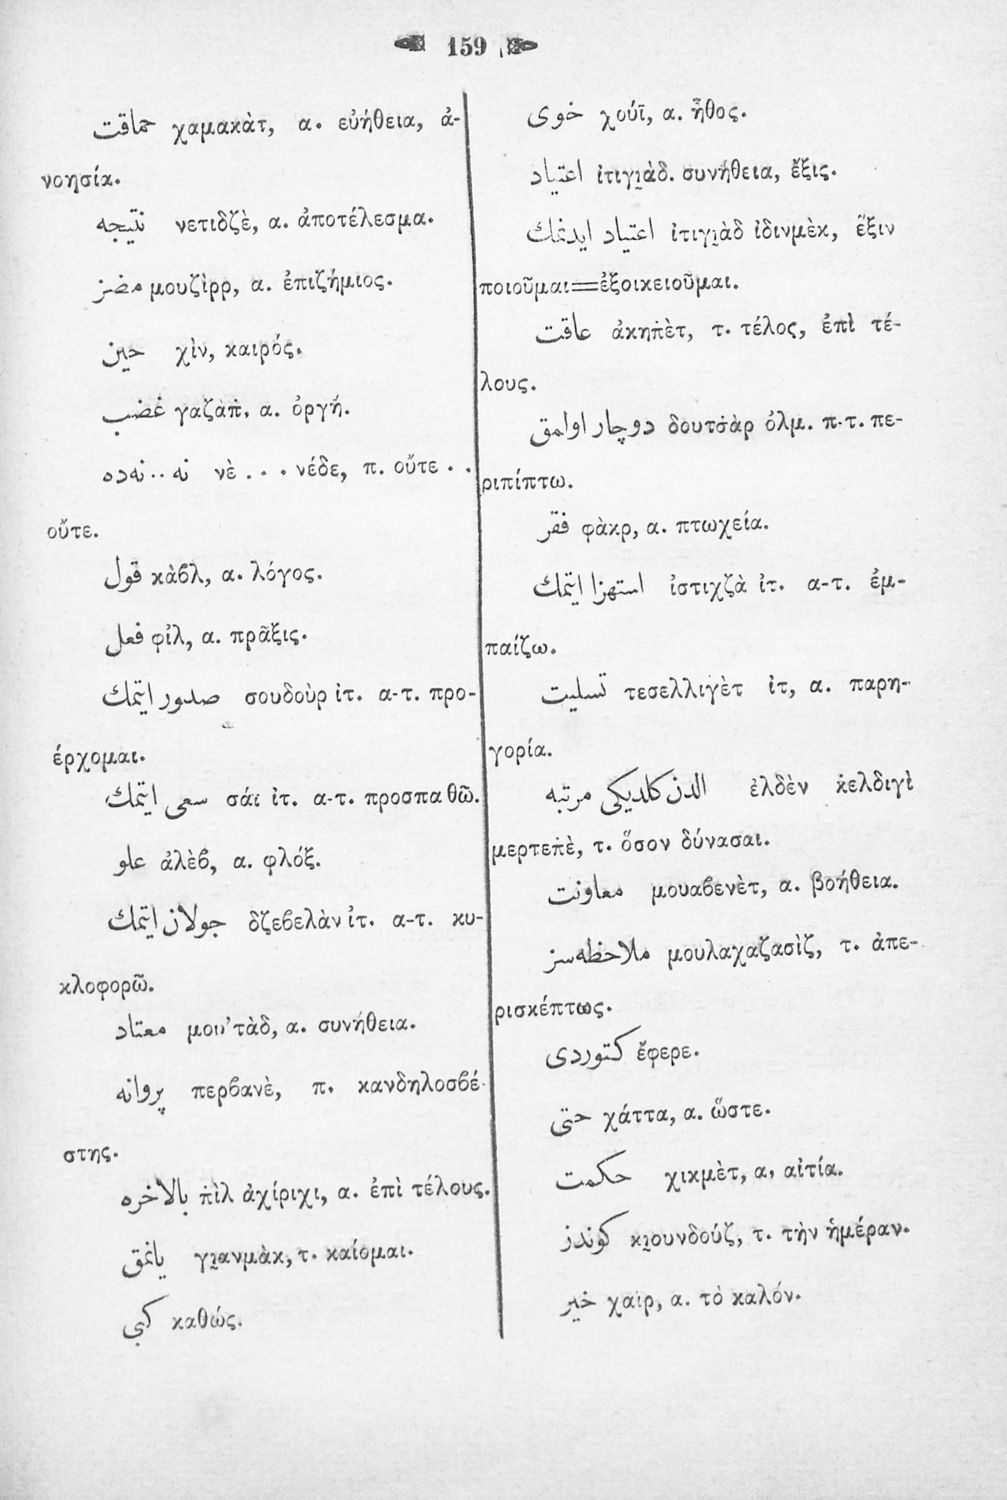 159
حماقت χαμακὰτ, α. εὐήθεια, ἀ-
νοησία.
نتيجه νετιδζὲ, α. ἀποτέλεσμα.
مضر μουζὶρρ, α. ἐπιζήμιος.
حين χὶν, καιρός.
غضب γαζὰπ̇, α. ὀργή.
نه .. نه‌ده νὲ . . . νέδε, π. οὔτε . .
οὔτε.
قول κὰβλ, α. λόγος.
فعل φὶλ, α. πρᾶξις.
صدور ايتمك σουδοὺρ ἰτ. α-τ. προ-
έρχομαι.
سعى ايتمك σάϊ ἰτ. α-τ. προσπαθῶ.
علو ἀλὲβ, α. φλόξ.
جولان ايتمك δζεβελὰν ἰτ. α-τ. κυ-
κλοφορῶ.
معتاد μου’τὰδ, α. συνήθεια.
پروانه περβανὲ, π. κανδηλοσβέ-
στης.
بالاخره π̇ὶλ ἀχίριχι, α. ἐπὶ τέλους.
يانمق γι̯ανμὰκ, τ. καίομαι.
كبى καθώς.
خوى χούϊ, α. ἦθος.
اعتياد ἰτιγι̯ὰδ. συνήθεια, ἕξις.
اعتياد ايدنمك ἰτιγι̯ὰδ ἰδινμὲκ, ἕξιν
ποιοῦμαι=ἐξοικειοῦμαι.
عاقبت ἀκηπ̇ὲτ, τ. τέλος, ἐπὶ τέ-
λους.
دوچار اولمق δουτσ̇ὰρ ὀλμ. π-τ. πε-
ριπίπτω.
فقر φὰκρ, α. πτωχεία.
استهزا ايتمك ἰστιχζὰ ἰτ. α-τ. ἐμ-
παίζω.
تسليت τεσελλιγὲτ ἰτ, α. παρη-
γορία.
الدن كلديكى مرتبه ἐλδὲν κ̇ελδιγὶ
μερτεπ̇ὲ, τ. ὅσον δύνασαι.
معاونت μουαβενὲτ, α. βοήθεια.
ملاحظه‌سز μουλαχαζασὶζ, τ. ἀπε-
ρισκέπτως.
كتوردى ἔφερε.
حتى χάττα, α. ὥστε.
حكمت χικμὲτ, α, αἰτία.
كوندز κι̯ουνδούζ, τ. τὴν ἡμέραν.
خير χαϊρ, α. τὸ καλόν.